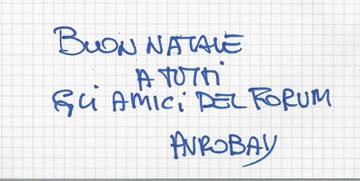 BUON NATALE
A TUTTI
GLI AMICI DEL FORUM
AVROBAY